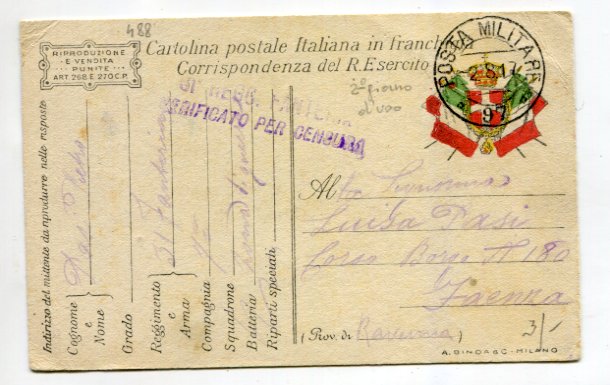 488
RIPRODUZIONE
E VENDITA
PUNITE
ART. 268 E 270 C.P.
Cartolina postale Italiana in franchigia
Corrispondenza del R. Esercito
POSTA MILITARE
97
31° REGG. FANTERIA
VERIFICATO PER CENSURA
2° giorno
d'uso
Indirizzo del mittente da riprodurre nelle risposte
Cognome
e
Nome
Grado
Reggimento
e
Arma
31 Fanteria
Compagnia
Squadrone
Batteria
Riparti speciali
Al
Luisa Pasi
Corso Borgo N 180
Faenza
(Prov. di Ravenna)
3/-
A. BINDA & C - MILANO